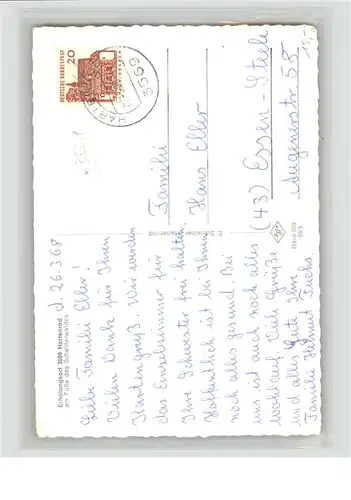 Erholungsort 3569 Hartenrod
am Fuße des Schelderwaldes
d. 26.3.68
Liebe Familie Eller!
Vielen Dank für Ihren
Kartengruß. Wir werden
das Einzelzimmer für
Ihre Schwester frei halten.
Hoffentlich ist bei Ihnen
noch alles gesund. Bei
uns ist auch noch alles
wohlauf. Viele Grüße
und alles Gute Ihre
Familie Helmut Fuchs
DEUTSCHE BUNDESPOST
20
3569
Familie
Hans Eller
(43) Essen-Steele
55